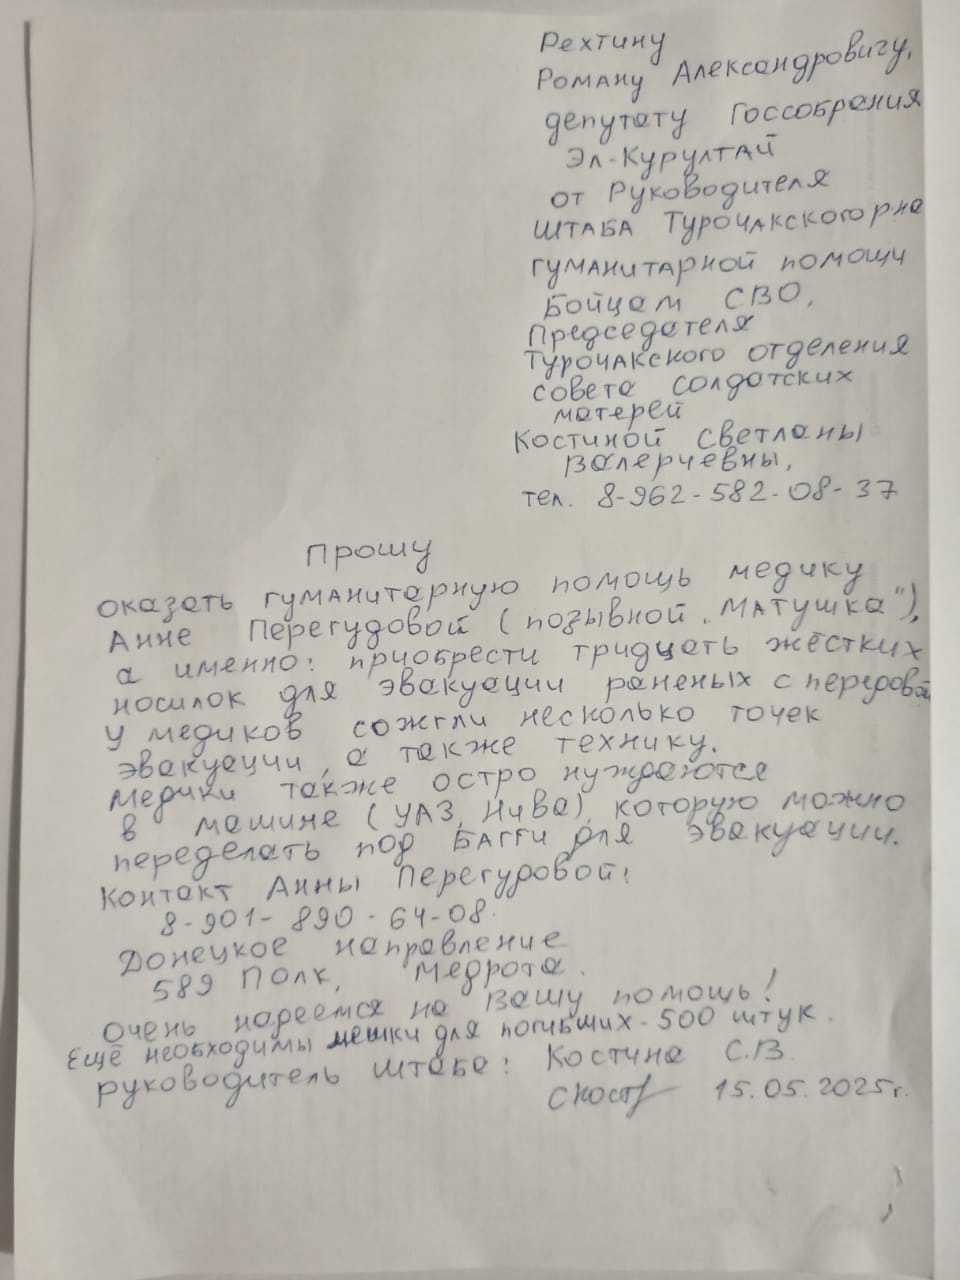 Рехтину
Роману Александровичу,
депутату Госсобрания
Эл-Курултай
от Руководителя
штаба Турочакского р-на
гуманитарной помощи
Бойцам СВО,
Председателя
Турочакского отделения
совета солдатских
матерей
Костиной Светланы
Валерьевны,
тел. 8-962-582-08-37
Прошу
оказать гуманитарную помощь медику
Анне Перегудовой (позывной „Матушка"),
а именно: приобрести тридцать жёстких
носилок для эвакуации раненых с передовой
У медиков сожгли несколько точек
эвакуации, а также технику.
Медики также остро нуждаются
в машине (УАЗ, Нива), которую можно
переделать под БАГГИ для эвакуации.
Контакт Анны Перегудовой:
8-901-890-64-08.
Донецкое направление
589 Полк, Медрота.
Очень надеемся на Вашу помощь!
Ещё необходимы мешки для погибших - 500 штук.
руководитель штаба: Костина С.В.
15.05.2025г.